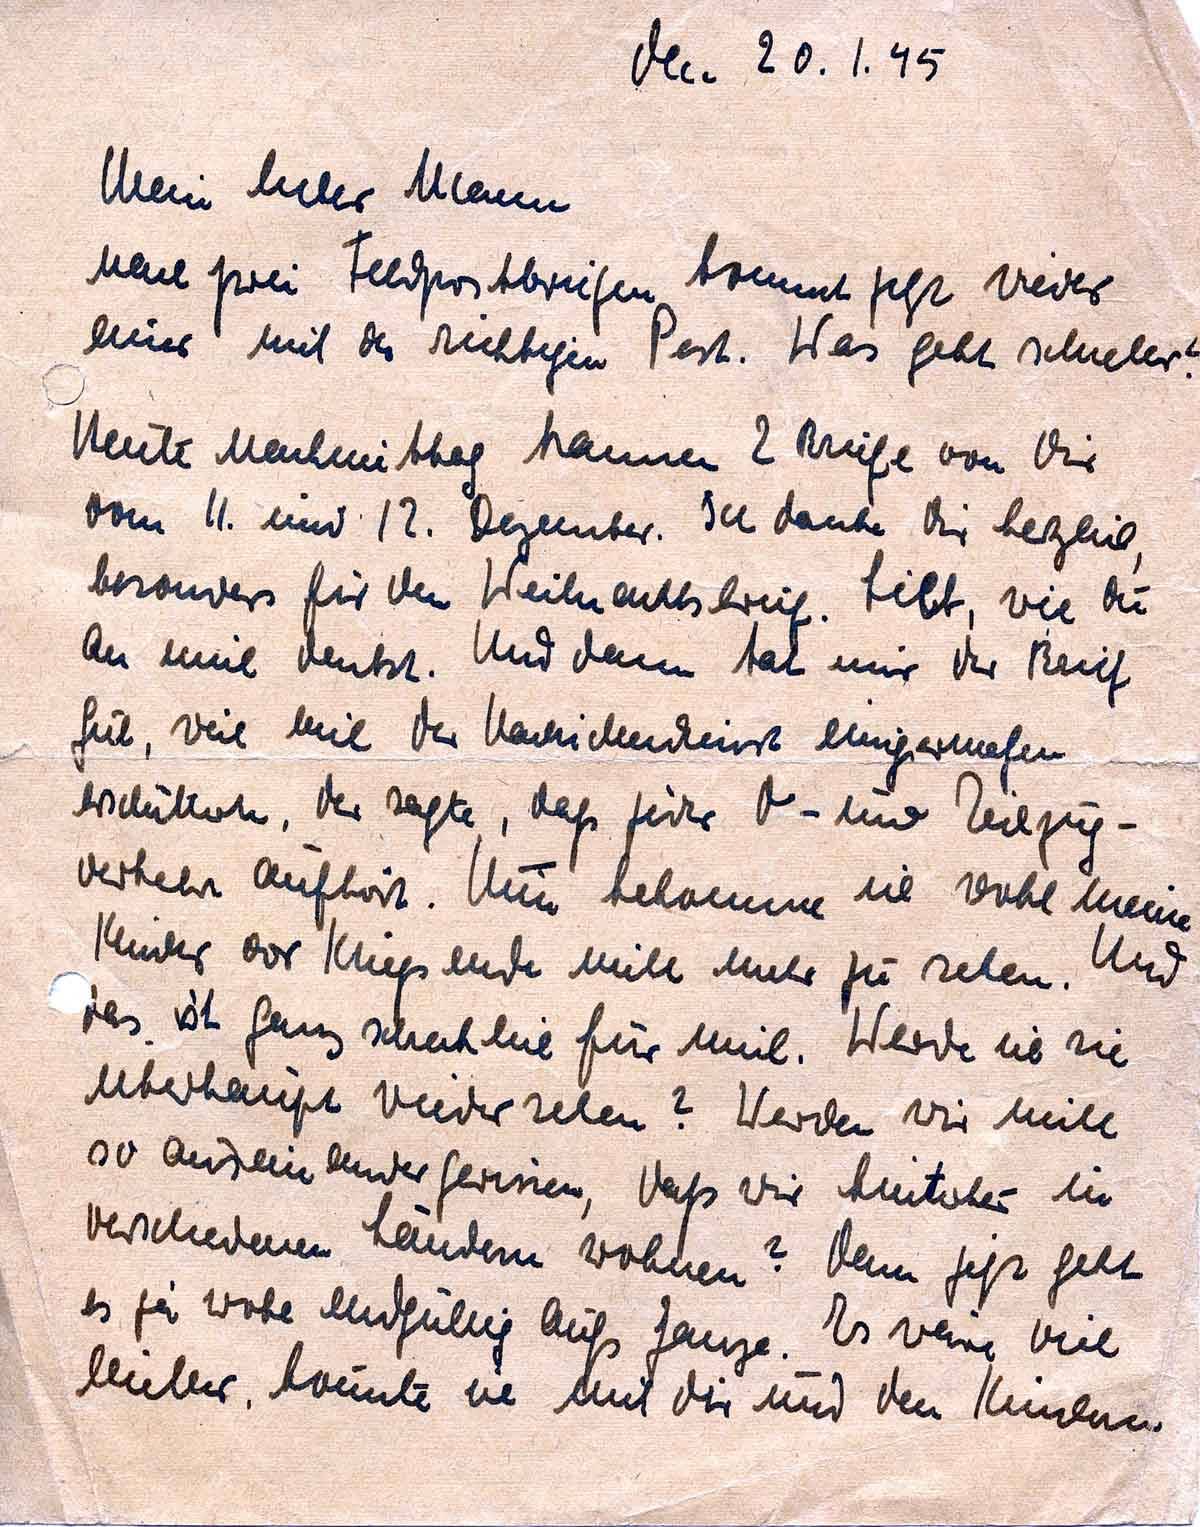 den 20.1.45
Mein lieber Mann
nach zwei Feldpostbriefen kommt jetzt wieder
einer mit der richtigen Post. Was geht schneller?
Heute Nachmittag kamen 2 Briefe von Dir
vom 11. und 12. Dezember. Ich danke Dir herzlich,
besonders für den Weihnachtsbrief. Lieb, wie Du
an mich denkst. Und dann tat mir der Brief
gut, weil mich der Nachrichtendienst einigermaßen
erschütterte, der sagte, daß jeder D- und Eilzug-
verkehr aufhört. Nun bekomme ich wohl meine
Kinder vor Kriegsende nicht mehr zu sehen. Und
das ist ganz schrecklich für mich. Werde ich sie
überhaupt wiedersehen? Werden wir nicht
so auseinandergerissen, daß wir hinterher in
verschiedenen Ländern wohnen? Denn jetzt geht
es ja wohl endgültig aufs Ganze. Es wäre viel
leichter, könnte ich mit dir und den Kindern